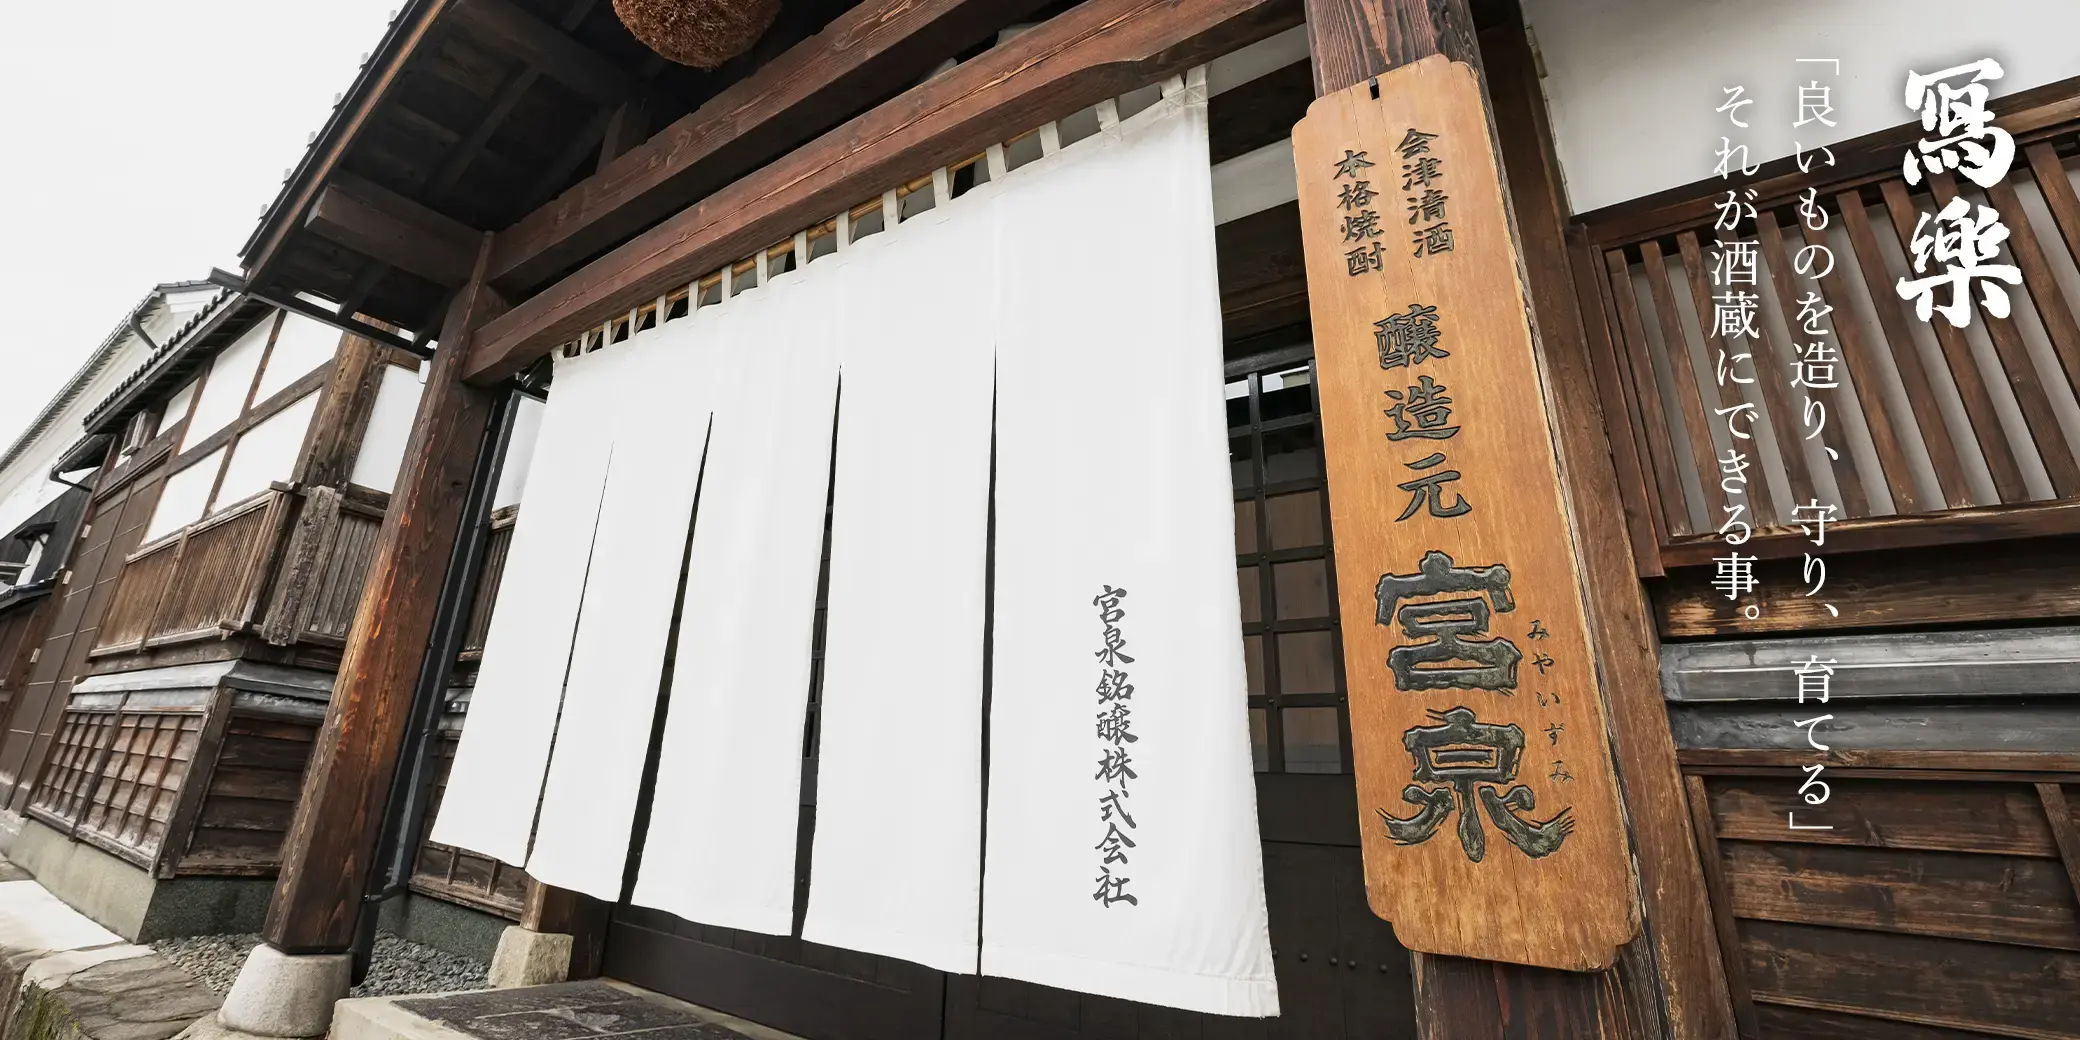 寫樂
「良いものを造り、守り、育てる」
それが酒蔵にできる事。
会津清酒
本格焼酎
醸造元 宮泉
みやいずみ
宮泉銘醸株式会社